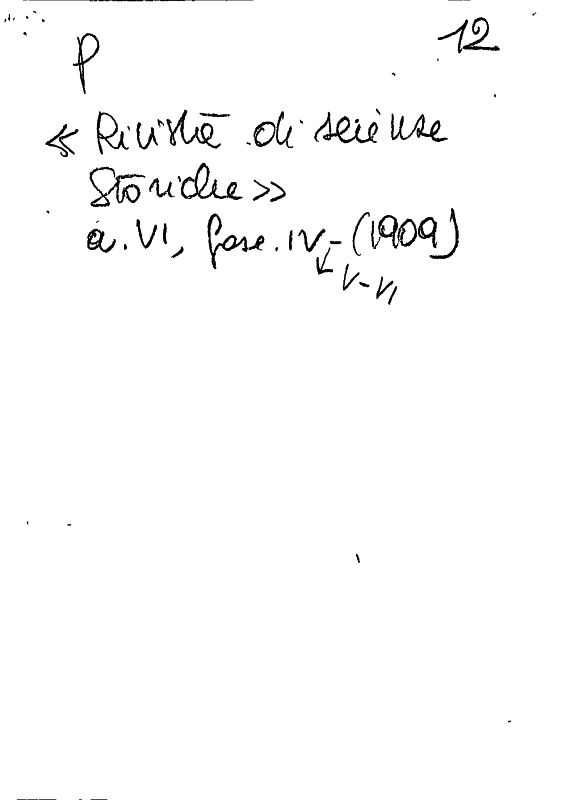 P
12
« Rivista di scienze
Storiche »
a. VI, fasc. IV - (1909)
V-VI